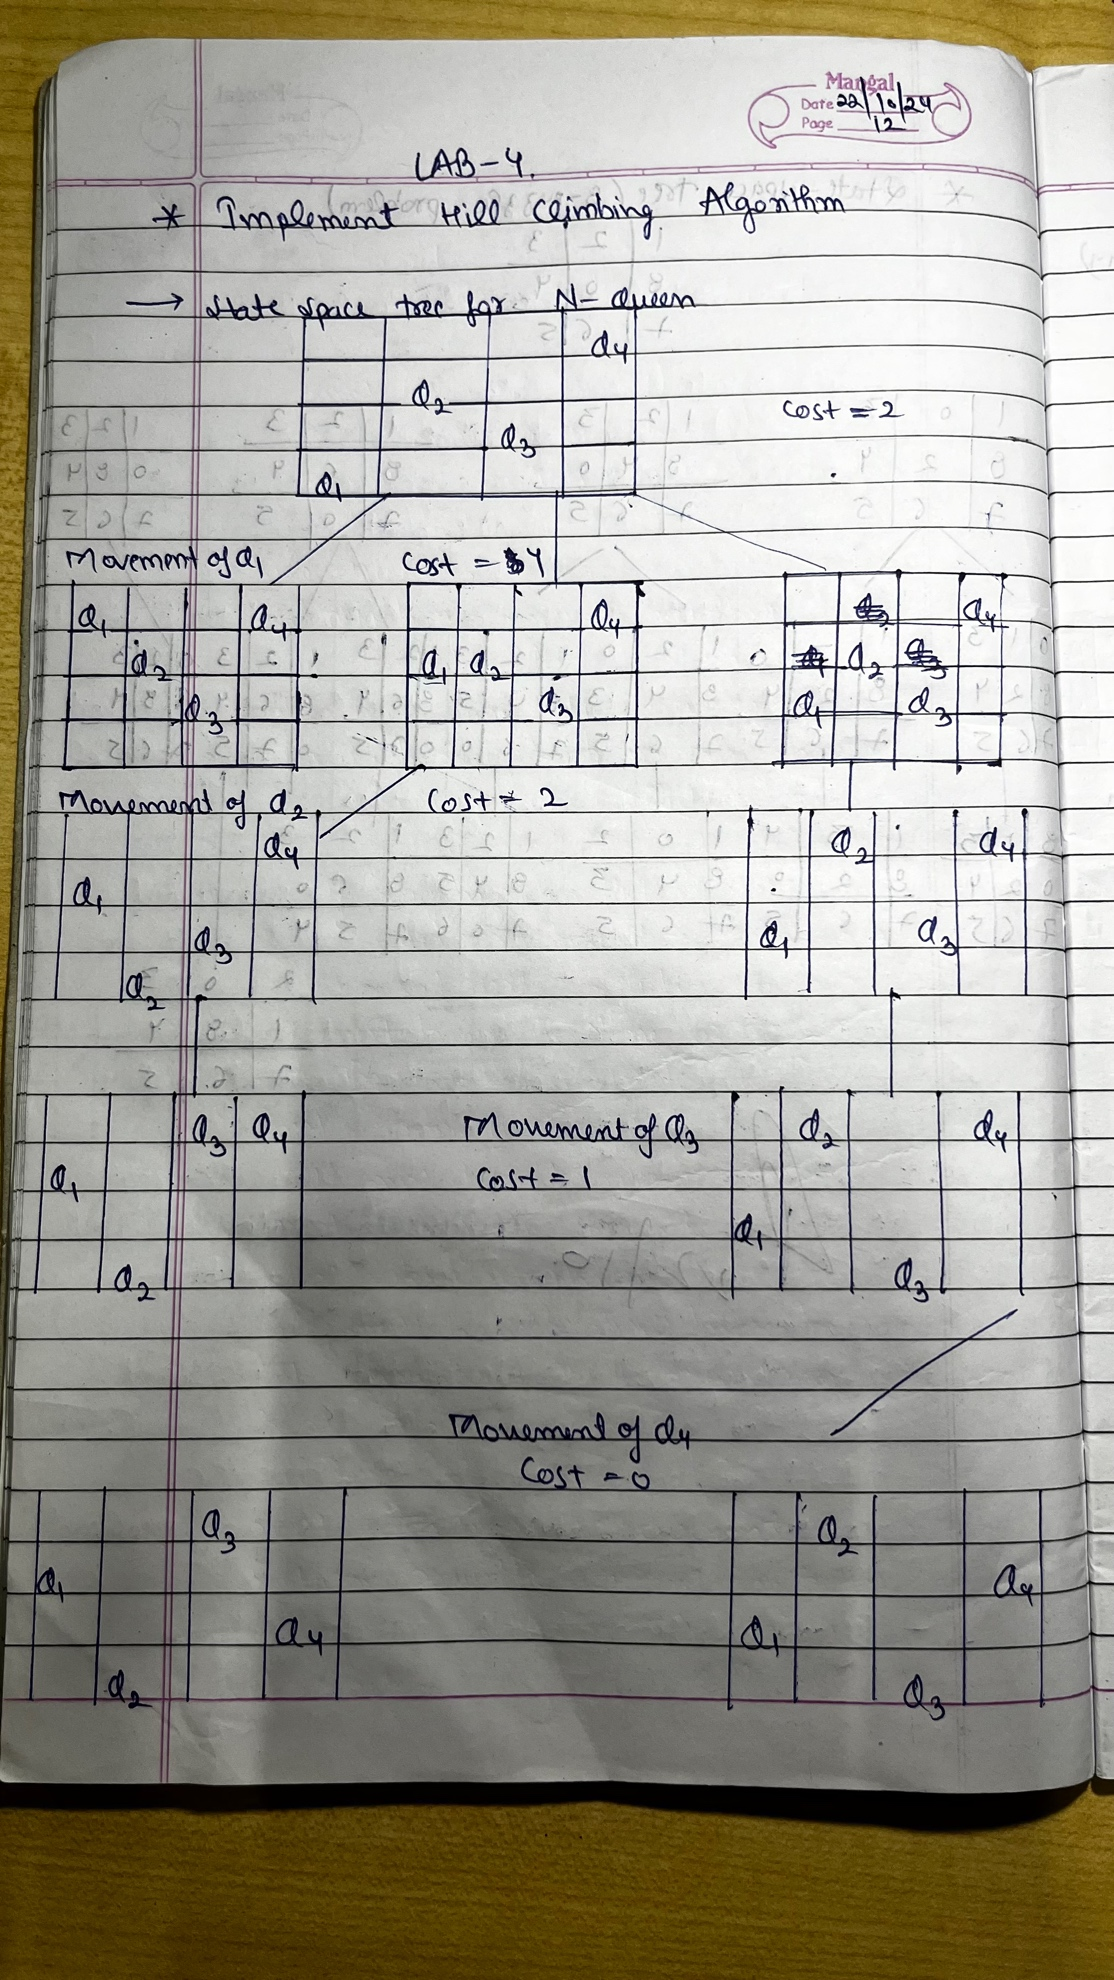 Mangal
Date 22/10/24
Page 12
LAB-4.
* Implement Hill Climbing Algorithm
→ State space tree for N-Queen
Q4
Q2
cost = 2
Q3
Q1
Movement of Q1 cost = 4
Q1 Q4 Q4 Q4
Q2 Q1 Q2 Q2
Q3 Q3 Q1 Q3
Movement of Q2 Cost = 2
Q4 Q2 Q4
Q1
Q3 Q1 Q3
Q2
Q3 Q4 Movement of Q3 Q2 Q4
Q1 Cost = 1
Q1
Q2 Q3
Movement of Q4
Cost = 0
Q3 Q2
Q1 Q4
Q4 Q1
Q2 Q3